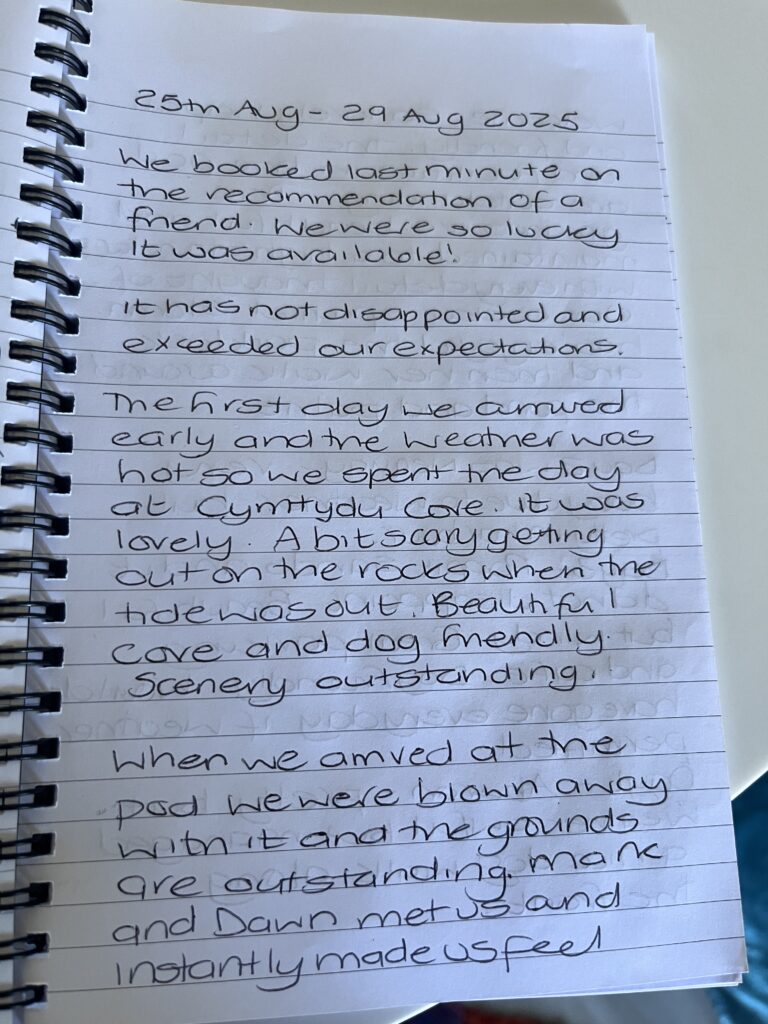 25th Aug - 29 Aug 2025
We booked last minute on
the recommendation of a
friend. We were so lucky
it was available!
it has not disappointed and
exceeded our expectations.
The first day we arrived
early and the weather was
hot so we spent the day
at Cymtydu Cove. it was
lovely. A bit scary getting
out on the rocks when the
tide was out. Beautiful
cove and dog friendly.
Scenery outstanding.
When we arrived at the
pod we were blown away
with it and the grounds
are outstanding. Mark
and Dawn met us and
instantly made us feel